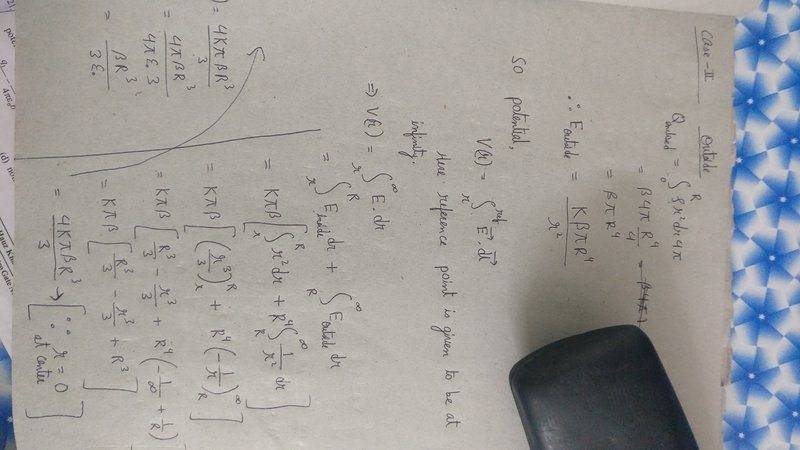 Case-III Outside
Q enclosed = ∫₀ᴿ ρ r² dr 4π
= β 4π R⁴/4
= β π R⁴
∴ E outside = KβπR⁴/r²
So potential,
V(r) = ∫ᵣ^ref E⃗.dl⃗
Here reference point is given to be at
infinity.
⇒ V(r) = ∫ᵣ^∞ E.dr
= ∫ᵣᴿ E inside dr + ∫_R^∞ E outside dr
= Kπβ [∫ᵣᴿ r² dr + R⁴ ∫_R^∞ 1/r² dr]
= Kπβ [(r³/3)ᵣᴿ + R⁴(-1/r)_R^∞]
= Kπβ [R³/3 - r³/3 + R⁴(-1/∞ + 1/R)]
= Kπβ [R³/3 - r³/3 + R³]
= 4KπβR³/3 → [∵ r = 0 at center]
) = 4KπβR³/3
= 4πβR³/4πε₀3
= βR³/3ε₀